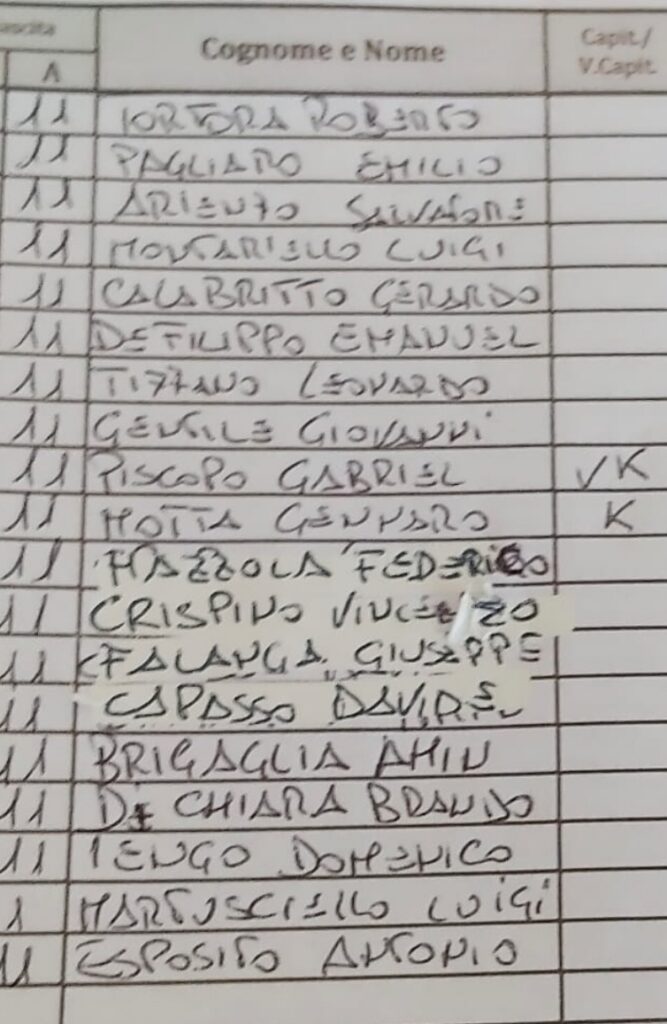 ascita Cognome e Nome Capit./ V.Capit.
A
11 TORTORA ROBERTO
11 PAGLIARO EMILIO
11 ARIENZO SALVATORE
11 MONTARIELLO LUIGI
11 CALABRITTO GERARDO
11 DE FILIPPO EMANUEL
11 TIZZANO LEONARDO
11 GENTILE GIOVANNI
11 PISCOPO GABRIEL VK
11 MOTTA GENNARO K
11 MAZZOLA FEDERICO
11 CRISPINO VINCENZO
11 FALANGA GIUSEPPE
11 CAPASSO DAVIDE
11 BRIGAGLIA AMIN
11 DE CHIARA BRANDO
11 IENGO DOMENICO
1 MARTUSCIELLO LUIGI
11 ESPOSITO ANTONIO